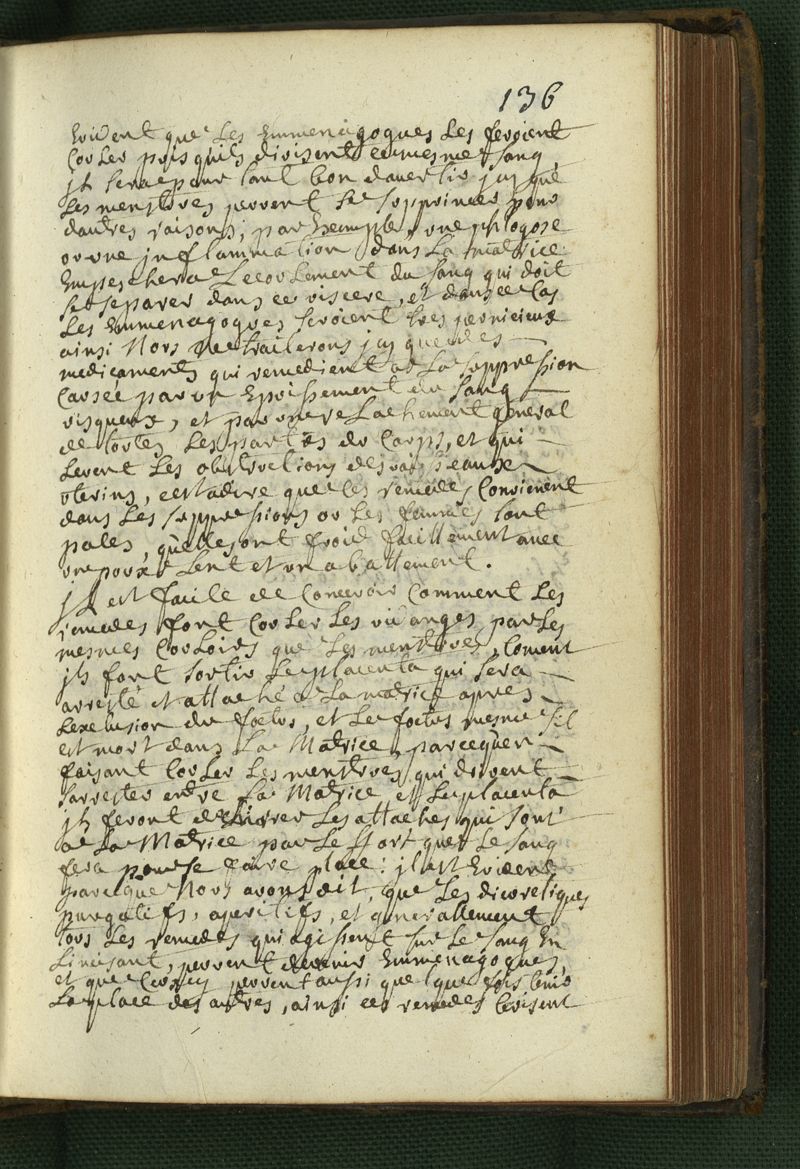 136
Evident que les Emmenagogues les feroient
Couler puis quils divisent eumesme le sang,
jl sera pour tant bon davertir jcy que
les menstrues peuvent se supprimer pour
dautres raisons; par Exemple, une phlogose
ou une jnflammation dans la matrice
Empeschera Lecoulement du sang qui doit
se separer dans ce viscere, et dans ce Cas
Les Emmenagogues seroient tres pernicieux
ainsi Nous Ne traiterons jcy que des
medicaments qui remedient a La suppression
Causée par un Epaissement du sang
visqueux, et par un relachement general
de toutes Les parties du Corps, et qui
levent Les obstructions des vaisseaux
uterins, cest adire que ces remedes Convienent
dans Les suppressions ou Les femmes sont
pales, quelles ont froid facillement avec
un poux Lent et un abattement.
jl est facile de Concevoir Comment Les
remedes font Couler Les vuidanges par Les
mesmes Couloirs que Les menstrues, Coment
jls font sortir Le placenta qui sera
arresté et attaché a La matrice apres
Lexclusion du foetus, et Le foetus mesme sil
est mort dans La Matrice, parcequen
faisant Couler Les menstrues qui doivent
sarrester entre La Matrice et Le placenta
jls feront les attaches qui sont
a La Matrice par Le Effort que Le sang
fera pour se faire place: jl est Evident
parceque Nous avons dit, que Les diuretiques
purgatifs, aperitifs, et generallement
tous Les remedes qui agissent sur Le sang En
Lincisant, peuvent devenir Emmenagogues,
et que Ceux cy peuvent aussi quelque fois tenir
La place des autres, ainsi ces remedes